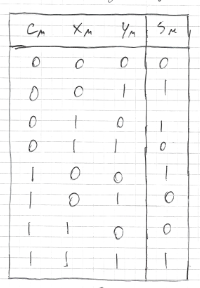 Cm Xm Ym Sm
0 0 0 0
0 0 1 1
0 1 0 1
0 1 1 0
1 0 0 1
1 0 1 0
1 1 0 0
1 1 1 1